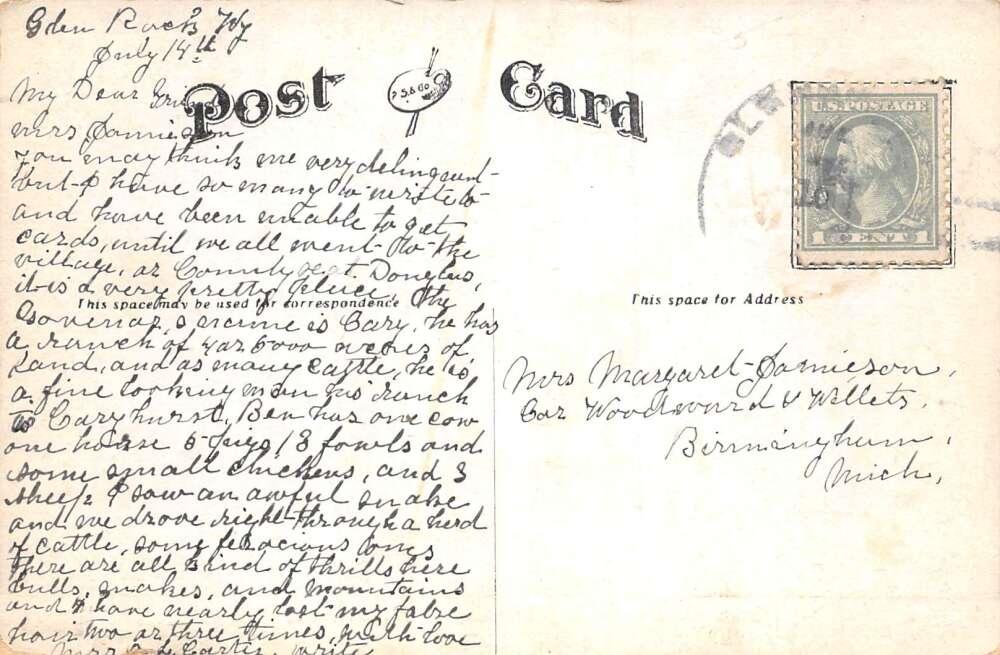 Glen Rock Wy
July 14th
My Dear
Mrs Jamieson
you may think me very delinquent
but I have so many to write to
and have been unable to get
cards, until we all went to the
village, or County seat. Douglas,
it is a very pretty place. The
Governor,s name is Cary, he has
a ranch of 4 or 5000 acres of
Land, and as many cattle, he is
a fine looking man his ranch
is Caryhurst, Ben has one cow
one horse 5 pigs 18 fowls and
some small chickens, and 3
sheep I saw an awful snake
and we drove right through a herd
of cattle, some ferocious ones
there are all kind of thrills here
bulls, snakes, and mountains
and I have nearly lost my false
hair two or three times, with love
Mrs Carter, write
Post Card
P.S.& Co
This space may be used for correspondence
This space for Address
U.S. POSTAGE
1 CENT 1
10
Mrs Margaret Jamieson,
Cor Woodward & Willets,
Birmingham,
Mich,